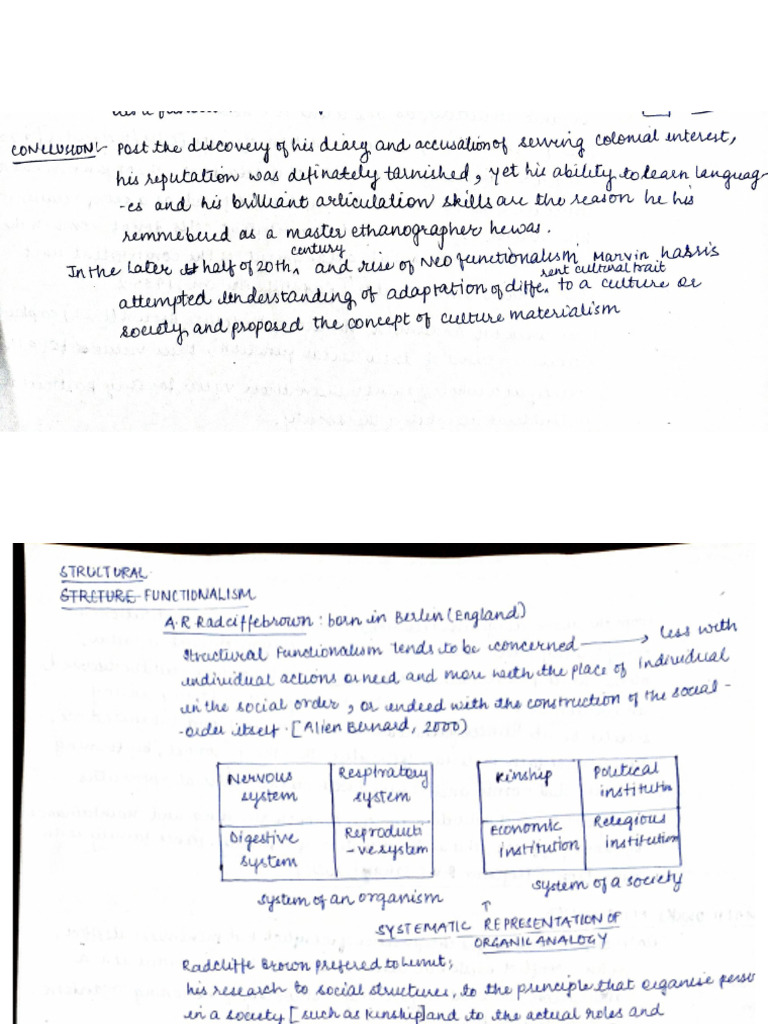 CONCLUSION:- Post the discovery of his diary and accusation of serving colonial interest,
his reputation was definately tarnished, yet his ability to learn languag-
-es and his brilliant articulation skills are the reason he his
remmebered as a master ethanographer he was.
century
In the later half of 20th and rise of Neo functionalism Marvin harris
rent cultural trait
attempted understanding of adaptation of diffe to a culture or
society and proposed the concept of culture materialism
STRUCTURAL
STRCTURE FUNCTIONALISM
A.R Radcliffebrown: born in Berlin (England)
Structural Functionalism tends to be concerned → less with
individual actions or need and more with the place of individual
in the social order, or indeed with the construction of the social-
-order itself. [Allen Bernard, 2000)
Nervous system
Respiratory system
Kinship
Political institutn
Digestive system
Reproducti-ve system
Economic institution
Relegious institution
system of an organism
system of a society
↑
SYSTEMATIC REPRESENTATION OF
ORGANIC ANALOGY
Radcliffe Brown prefered to limit;
his research to social structures, to the principle that organise
in a society [such as kinship] and to the actual roles and